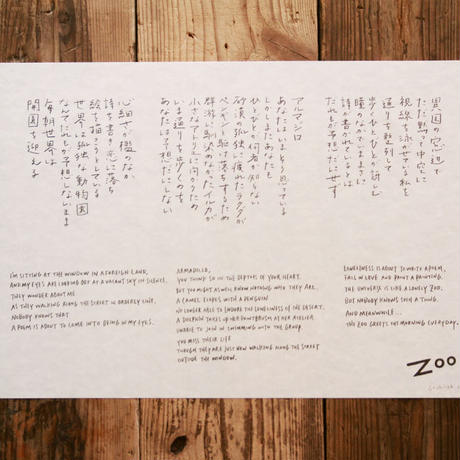 異国の窓辺で
ただ黙って中空に
視線を泳がせる私を
通りを整列して
歩くひとびとが訝しむ
瞳のなかでいままさに
詩が書かれているとは
だれも予想だにせず
アルマジロ
あなたはいまそう思っている
しかしまたあなたも
ひとびとが何者か知らない
砂漠の孤独に疲れたラクダが
ペンギンと駆け落ちするため
群游に馴染めなかったイルカが
小さなアトリエに向かうため
いま通りを歩くのを
あなたは予想だにしない
心細さが檻のなか
詩を書き恋に落ち
絵を描こうとしている
世界は孤独な動物園
なんてだれも予想しないまま
毎朝世界は
開園を迎える
I'M SITTING AT THE WINDOW IN A FOREIGN LAND,
AND MY EYES ARE LOOKING OUT AT A VACANT SKY IN SILENCE.
THEY WONDER ABOUT ME
AS THEY WALKING ALONG THE STREET IN ORDERLY LINE,
NOBODY KNOWS THAT
A POEM IS ABOUT TO COME INTO BEING IN MY EYES.
ARMADILLO,
YOU THINK SO IN THE DEPTHS OF YOUR HEART.
BUT YOU MIGHT AS WELL KNOW NOTHING WHO THEY ARE.
A CAMEL ELOPES WITH A PENGUIN
NO LONGER ABLE TO ENDURE THE LONELINESS OF THE DESERT.
A DOLPHIN TAKES UP HER PAINTBRUSH AT HER ATELIER
UNABLE TO JOIN IN SWIMMING WITH THE GROUP.
YOU MISS THEIR LIFE
THOUGH THEY ARE JUST NOW WALKING ALONG THE STREET
OUTSIDE THE WINDOW.
LONELINESS IS ABOUT TO WRITE A POEM,
FALL IN LOVE AND PAINT A PAINTING.
THE UNIVERSE IS LIKE A LONELY ZOO,
BUT NOBODY KNOWS SUCH A THING.
AND MEANWHILE...
THE ZOO GREETS THE MORNING EVERYDAY.
ZOO